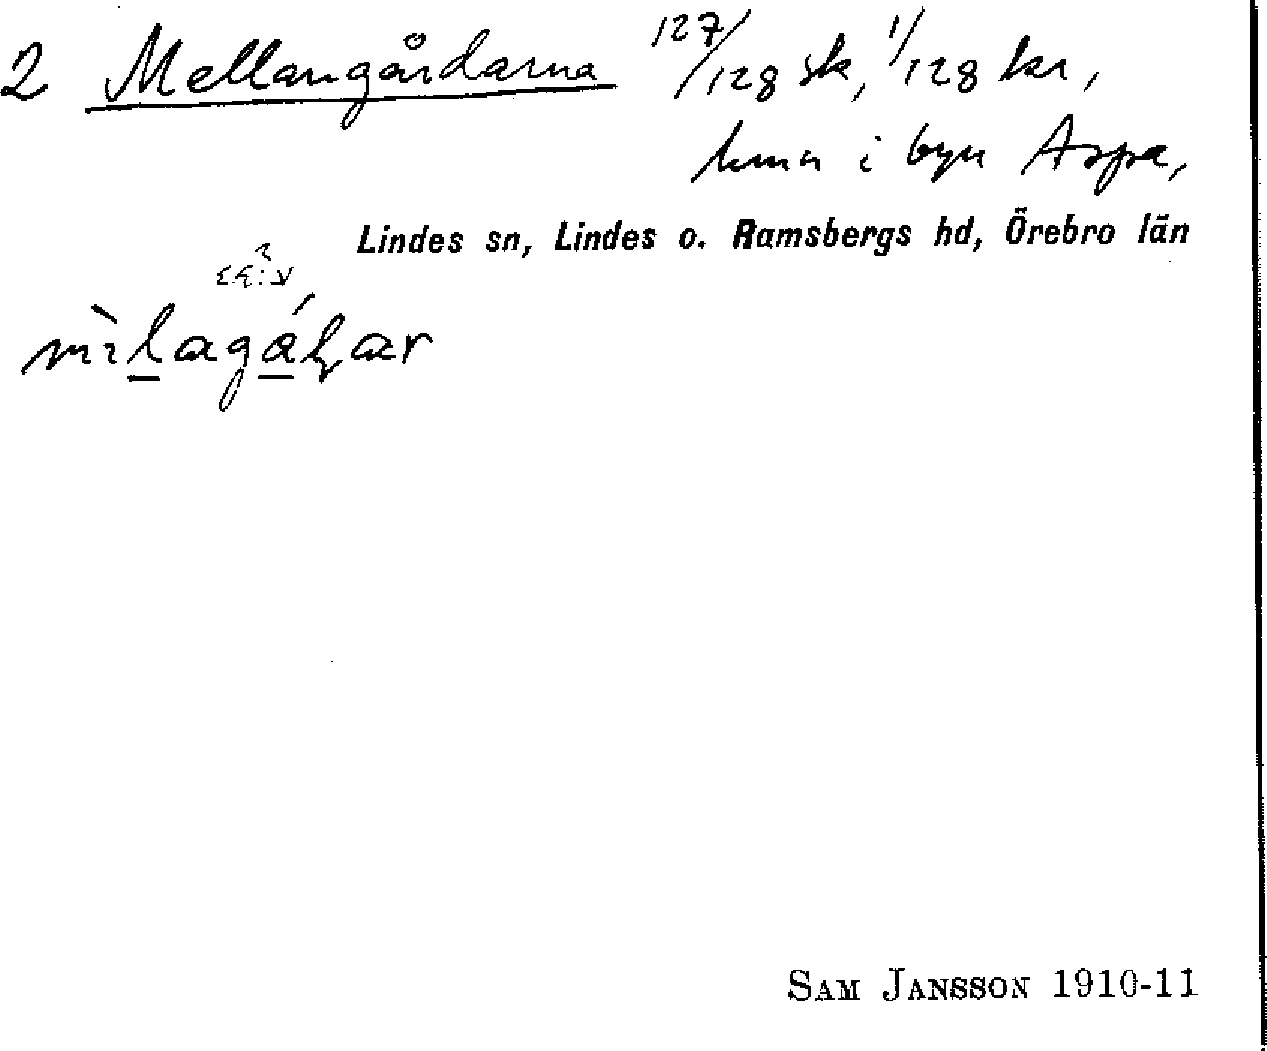 2 Mellangårdarna 127/128 sk, 1/128 kr,
hmn i byn Aspa,
Lindes sn, Lindes o. Ramsbergs hd, Örebro län
SAM JANSSON 1910-11